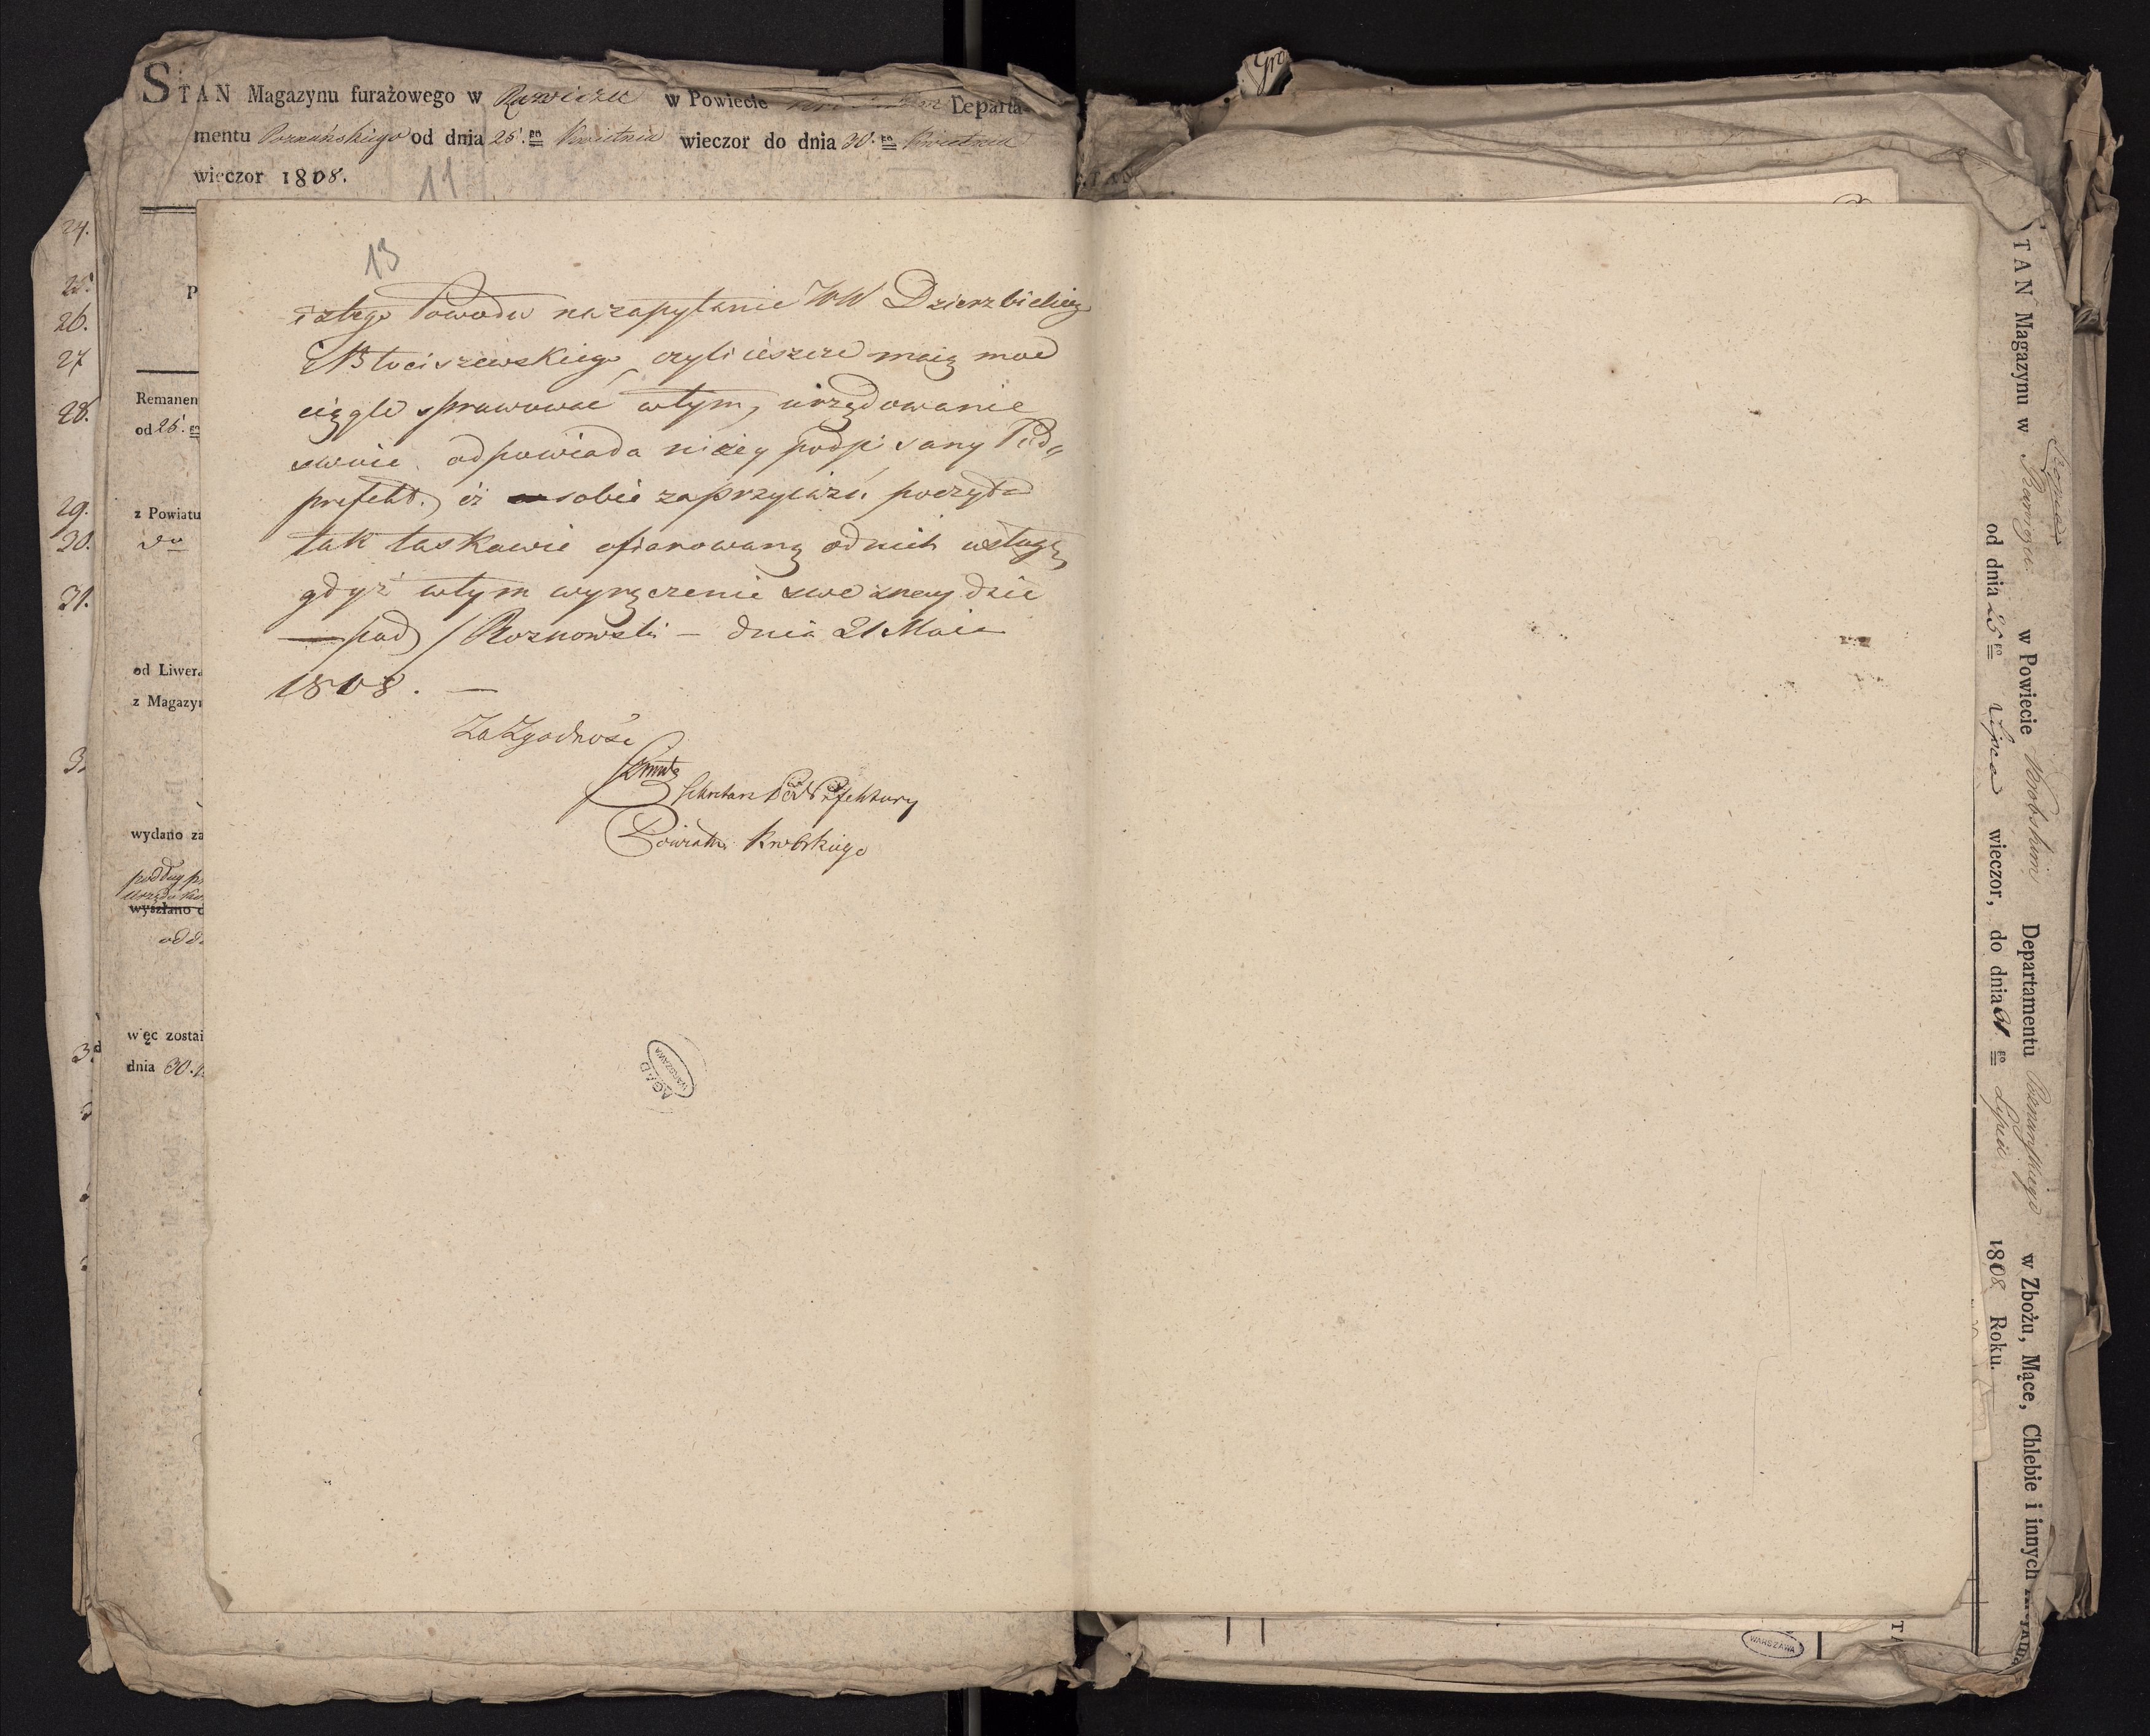 STAN Magazynu furażowego w Rawiczu w Powiecie Departa-
mentu Poznańskiego od dnia 25.go Kwietnia wieczor do dnia 30.go Kwietnia
wieczor 1808.
11
24.
25.
26.
27
28.
29.
30.
31.
P
Remanen
od 25. go
z Powiatu
do
od Liwer
z Magazyn
wydano za
podług
wyszłano
odda
więc zostai
dnia 30.
13
i z tego Powodu na zapytanie WW Dzierzbickiego
i Błociszewskiego, czyli ieszcze maią moc
ciągle sprawować w tym, urzędowanie
swoie odpowiada niżey podpisany Pod„
prefekt, iż sobie za przyiaźń poczyta
tak łaskawie ofiarowaną od nich usługę,
gdyż w tym wyręczenie swe znaydzie
pod / Roznowski – dnia 21 Maia
1808. —
Za Zgodność
Sekretarz Pod Prefektury
Powiatu Krobskiego
AGAD
WARSZAWA
STAN Magazynu w Rawiczu w Powiecie Krobskim Departamentu Poznańskiego w Zbożu, Mące, Chlebie i innych
od dnia 25 go Lipca wieczor, do dnia 31 go Lipca 1808 Roku.
WARSZAWA